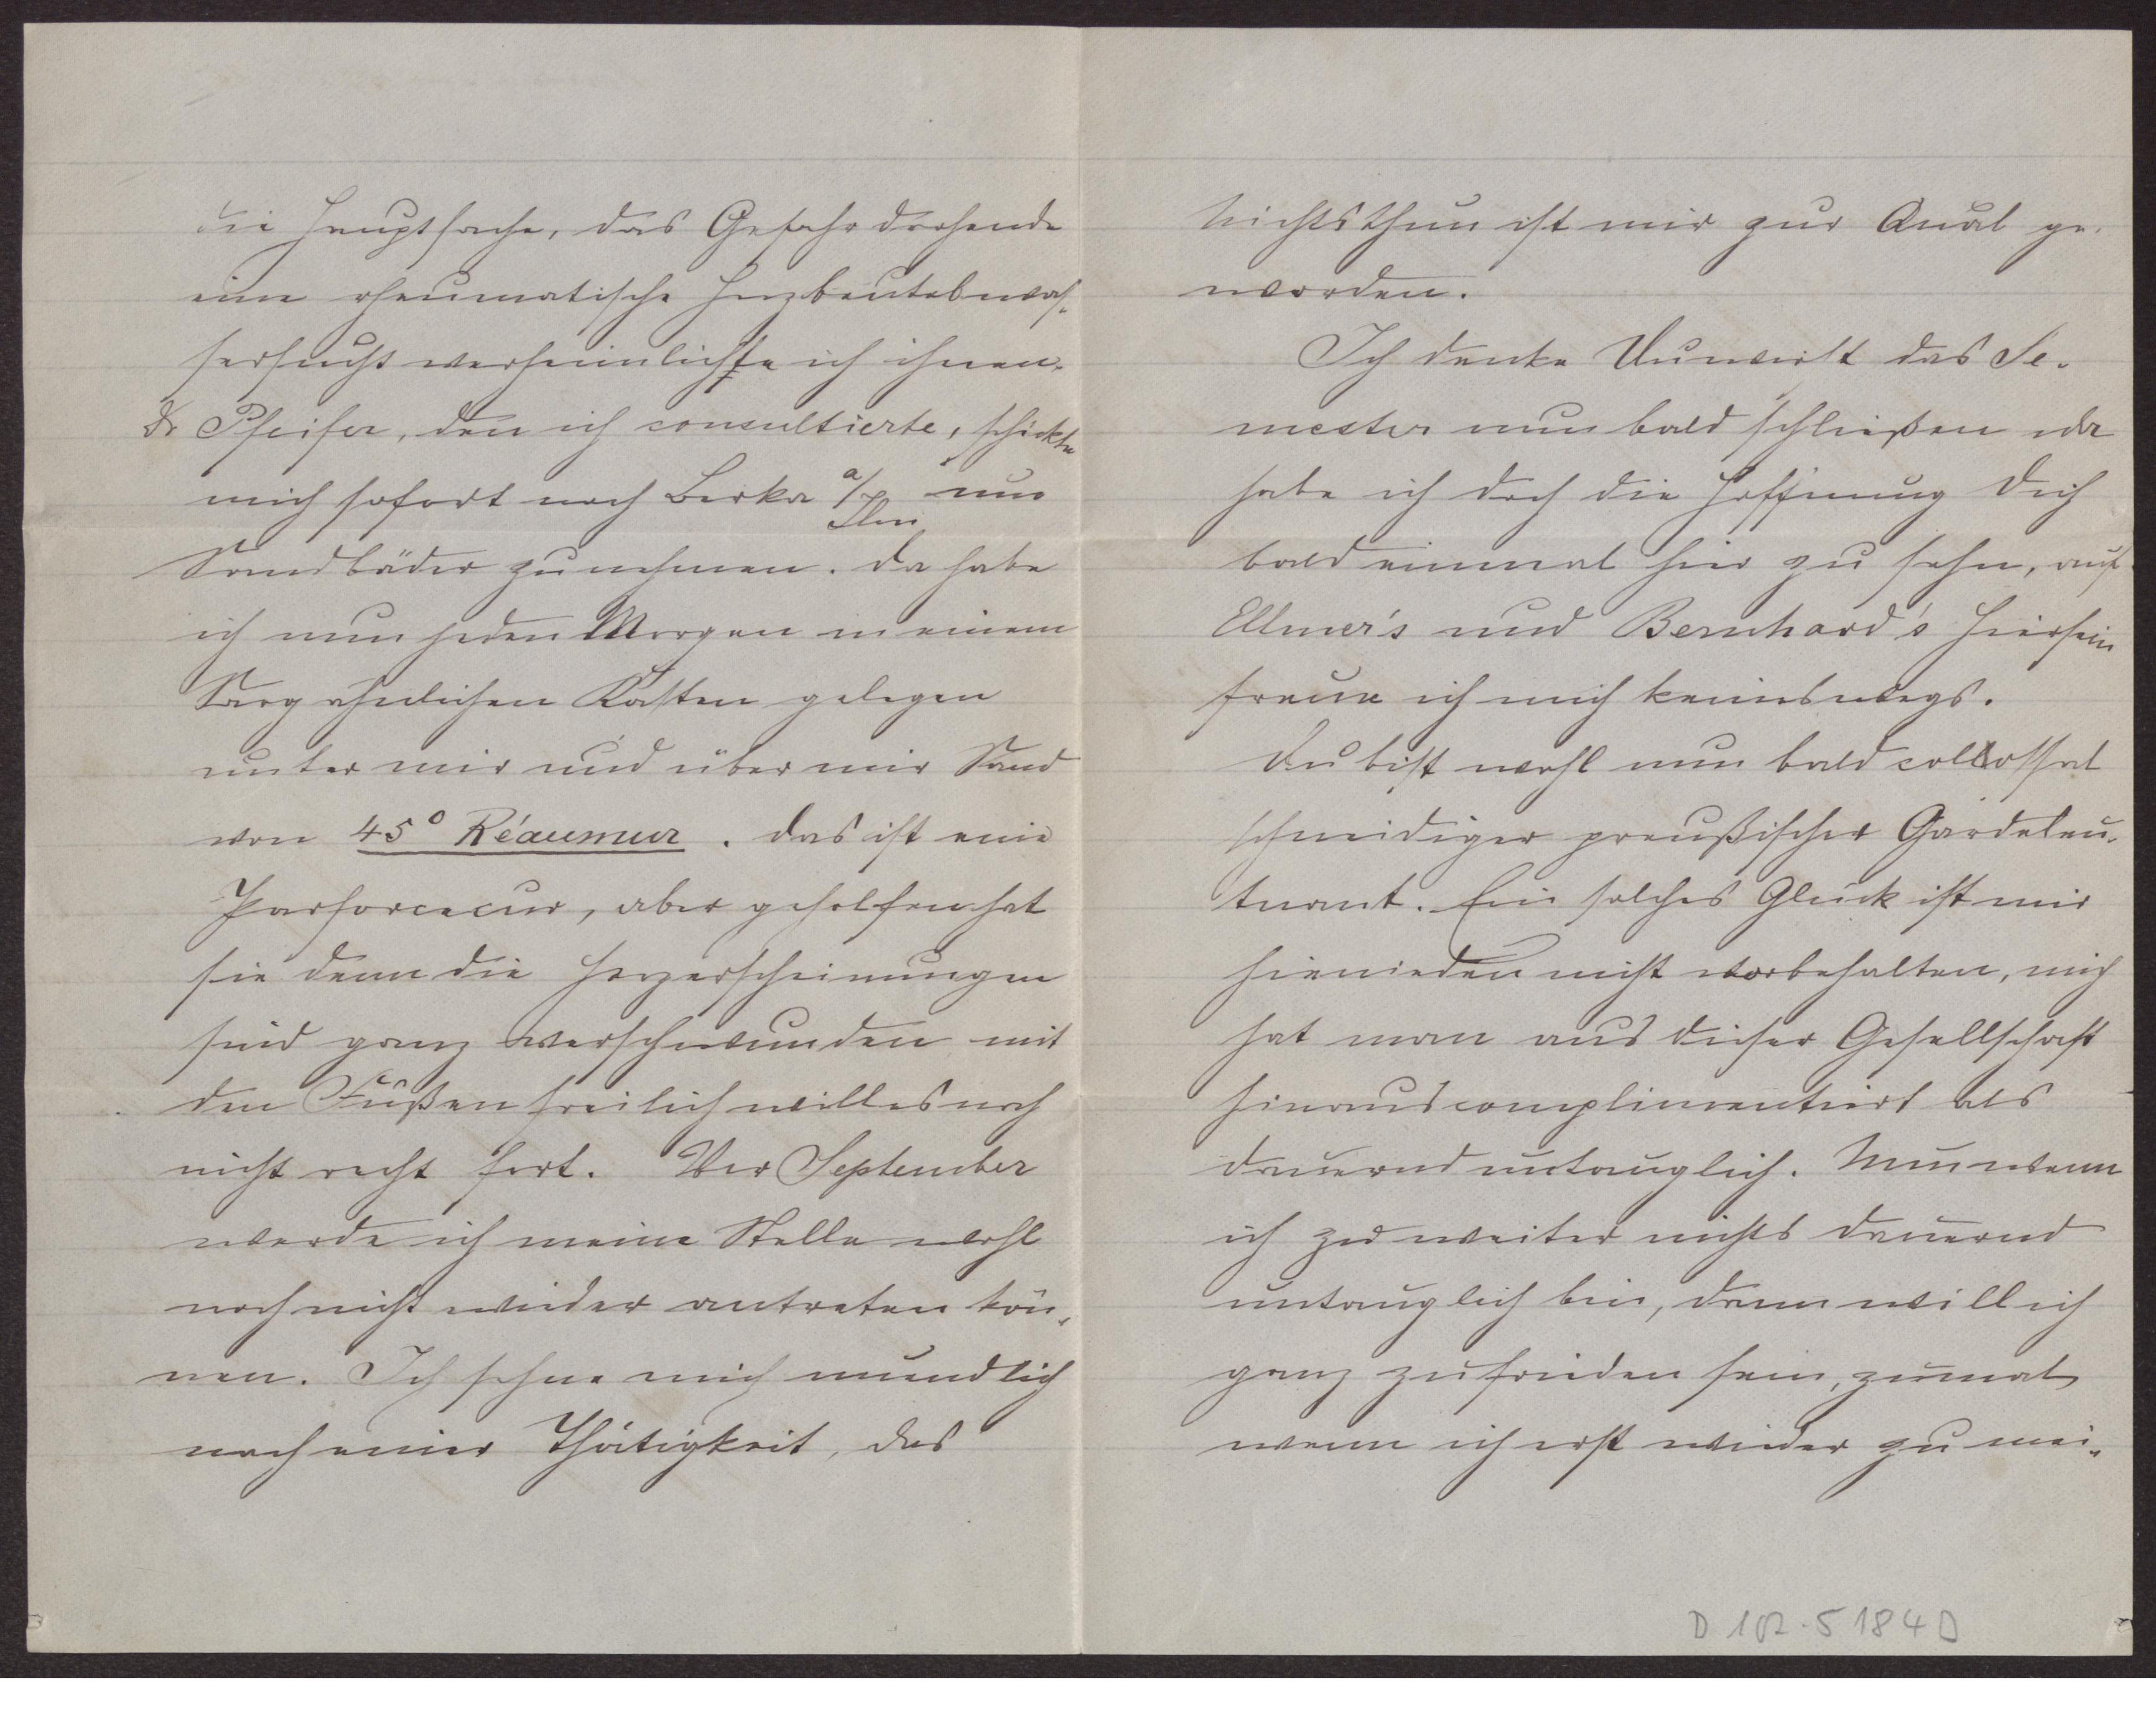 die Hauptsache, das Gefahr drohende
eine rheumatische Herzbeutelwas-
sersucht verheimlichte ich ihnen.
Dr Pfeifer, den ich consultierte, schickte
mich sofort nach Berka a/Ilm um
Sandbäder zu nehmen. Da habe
ich nun jeden Morgen in einem
Sarg ähnlichen Kasten gelegen
unter mir und über mir Sand
von 45° Réaumur. Das ist eine
Parforcecur, aber geholfen hat
sie denn die Herzerscheinungen
sind ganz verschwunden mit
den Füßen freilich will es noch
nicht recht fort. Vor September
werde ich meine Stelle wohl
noch nicht wieder antreten kön-
nen. Ich sehne mich unendlich
nach einer Thätigkeit, das
Nichtsthun ist mir zur Qual ge-
worden.
Ich denke Du wirst das Se-
mester nun bald schließen da
habe ich doch die Hoffnung Dich
bald einmal hier zu sehn, auf
Ellmer's und Bernhard's Hiersein
freue ich mich keineswegs.
Du bist wohl nun bald collossal
schneidiger preußischer Gardeleu-
tnant. Ein solches Glück ist mir
hienieden nicht vorbehalten, mich
hat man aus dieser Gesellschaft
hinauscomplimentiert als
dauernd untauglich. Nun wenn
ich zu weiter nichts dauernd
untauglich bin, dann will ich
ganz zufrieden sein, zumal
wenn ich erst wieder zu mei-